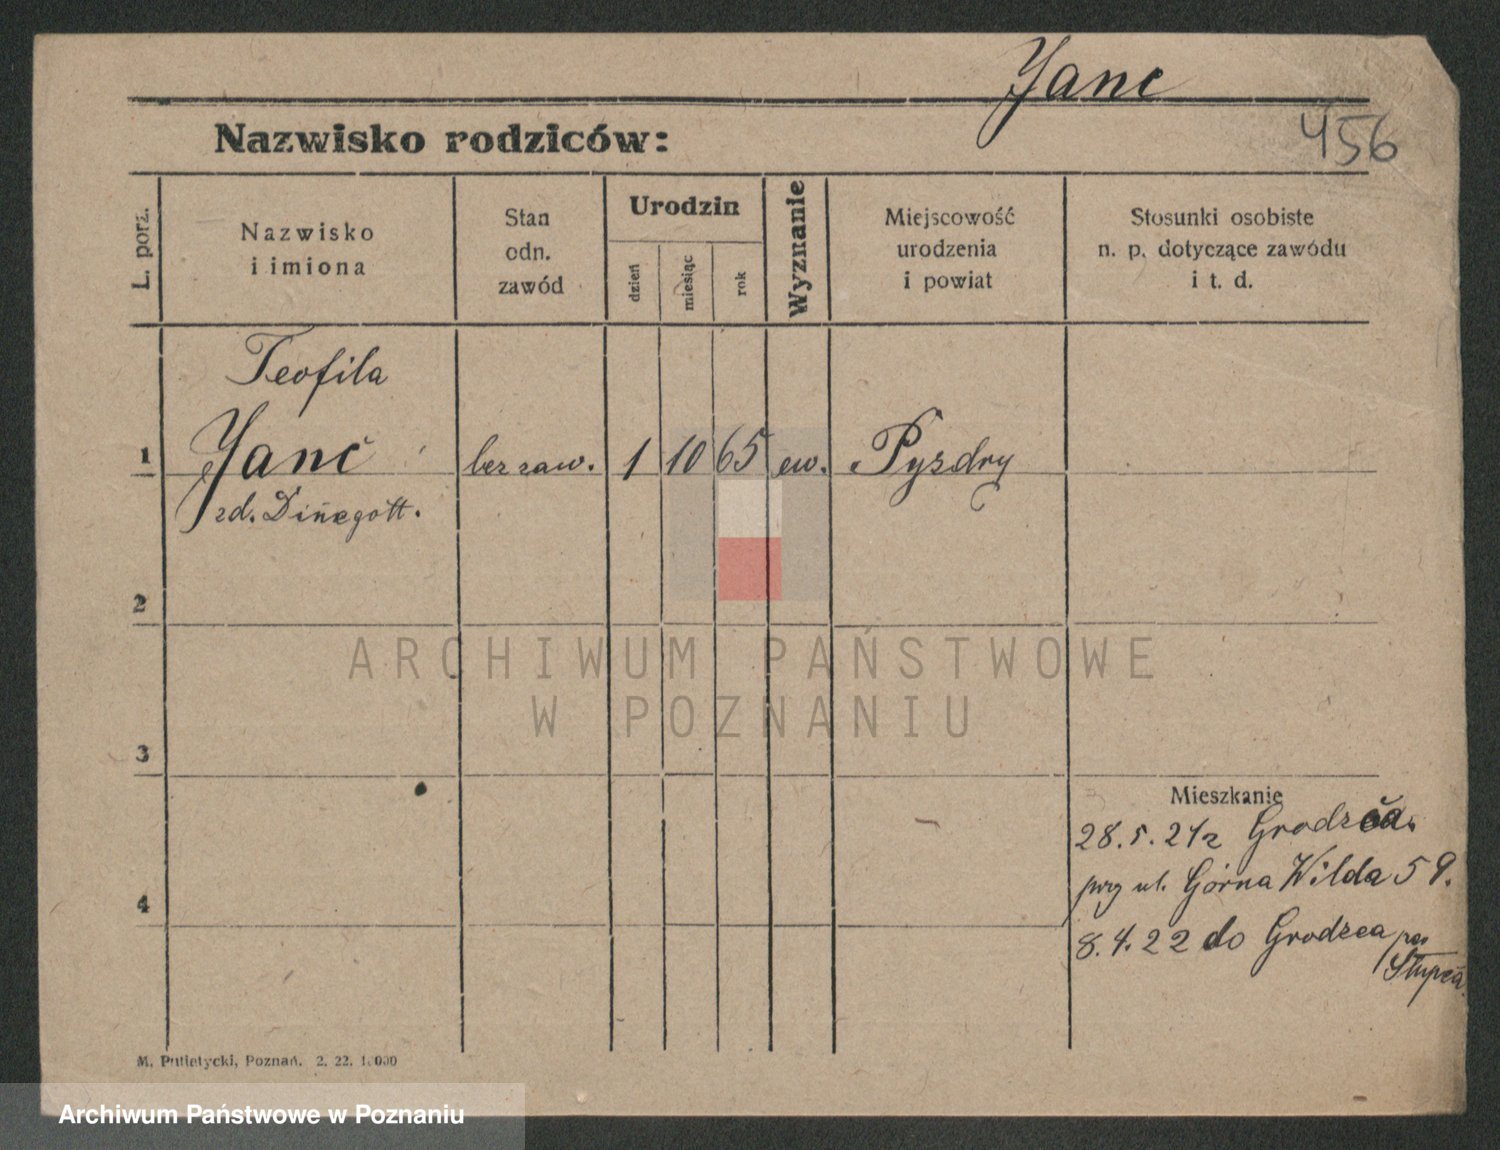 Janc
456
Nazwisko rodziców:
L. porz.
Nazwisko
i imiona
Stan
odn.
zawód
Urodzin
dzień
miesiąc
rok
Wyznanie
Miejscowość
urodzenia
i powiat
Stosunki osobiste
n. p. dotyczące zawódu
i t. d.
Teofila
1 Janc bez zaw. 1 10 65 ew. Pyzdry
zd. Dinegott.
2
3
4
Mieszkanie
28.5.21 z Grodźca.
przy ul. Górna Wilda 59.
8.4.22 do Grodźca pow
Słupca.
M. Putiatycki, Poznań. 2. 22. 1.000
ARCHIWUM PAŃSTWOWE
W POZNANIU
Archiwum Państwowe w Poznaniu